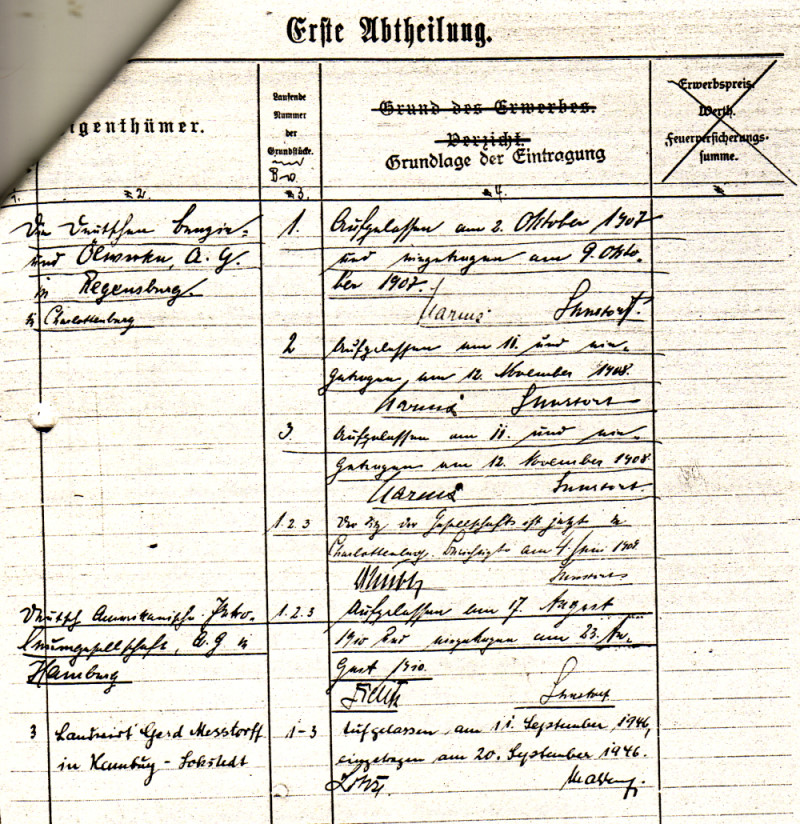 Erste Abtheilung.
igenthümer.
Laufende
Nummer
der
Grundstücke.
und
B.V.
Grund des Erwerbes.
Verzicht.
Grundlage der Eintragung
Erwerbspreis.
Werth.
Feuerversicherungs-
summe.
2. 3. 4.
Die Deutschen Benzin- 1. Aufgelassen am 2. Oktober 1907
und Ölwerke, A. G. und eingetragen am 9. Okto-
in Regensburg. ber 1907.
in Charlottenburg
2 Aufgelassen am 11. und ein-
getragen am 12. November 1908.
3. Aufgelassen am 11. und ein-
getragen am 12. November 1908
1.2.3 Der Sitz der Gesellschaft ist jetzt in
Charlottenburg. am 4. 
Deutsch Amerikanische Petro- 1.2.3 Aufgelassen am 17. August
leumgesellschaft, A.G in 1910 und eingetragen am 23. Au-
Hamburg gust 1910.
3 Landwirt Gerd Messtorff 1-3 Aufgelassen am 11. September 1946,
in Hamburg - Lokstedt eingetragen am 20. September 1946.